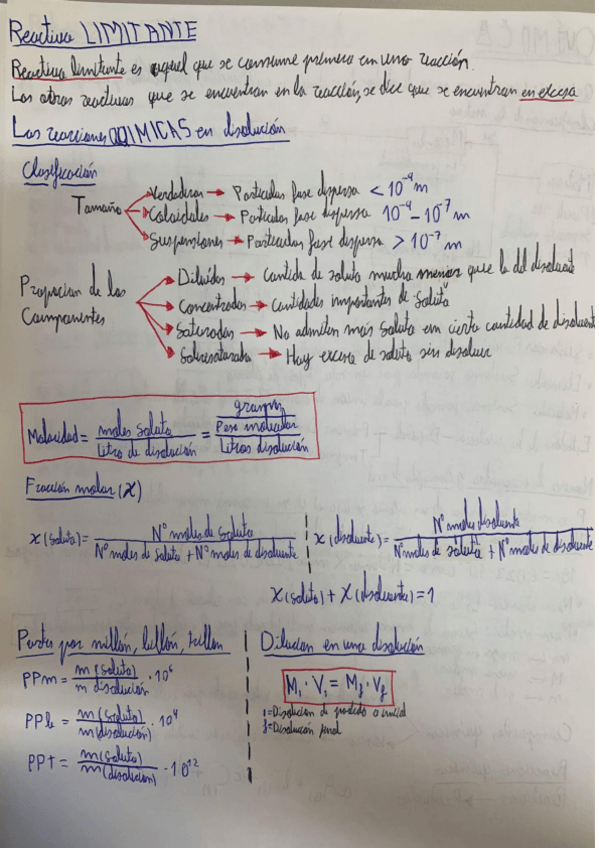 Reactivo LIMITANTE
Reactivo limitante es aquel que se consume primero en una reacción.
Los otros reactivos que se encuentran en la reacción, se dice que se encuentran en exceso
Las reacciones QUIMICAS en disolución
Clasificación
Tamaño
Verdaderas → Particulas fase dispersa < 10⁻⁹ m
Coloidales → Particulas fase dispersa 10⁻⁹ - 10⁻⁷ m
Suspensiones → Particulas fase dispersa > 10⁻⁷ m
Proporcion de los Componentes
Diluidas → Cantida de soluto mucho menor que la del disolvente
Concentradas → Cantidades importantes de soluto
Saturadas → No admiten más soluto en cierta cantidad de disolvente
Sobresaturada → Hay exceso de soluto sin disolver
Molaridad = moles soluto / Litro de disolución = gramos / Peso molecular / Litros disolución
Fracción molar (X)
X (soluto) = Nº moles de soluto / Nº moles de soluto + Nº moles de disolvente
X (disolvente) = Nº moles disolvente / Nº moles de soluto + Nº moles de disolvente
X (soluto) + X (disolvente) = 1
Partes por millón, billón, trillon
PPm = m (soluto) / m disolución · 10⁶
PPb = m (soluto) / m (disolución) · 10⁹
PPt = m (soluto) / m (disolución) · 10¹²
Dilucion en una disolución
M₁ · V₁ = M𝒻 · V𝒻
1 = Disolucion de partida o inicial
f = Disolucion final